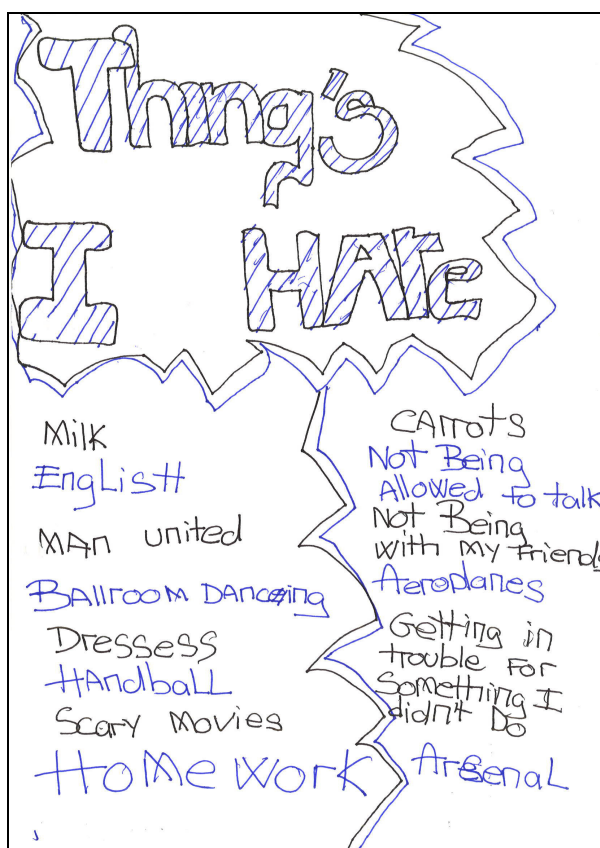 Thing's
I HATe
Milk
EngLisH
MAn united
BAllrooM DAnceing
Dressess
HAndbaLL
Scary Movies
HoMe work
CArrots
Not Being
Allowed to talk
Not Being
with my Friends
Aeroplanes
Getting in
trouble For
Something I
didn't Do
ArsenaL